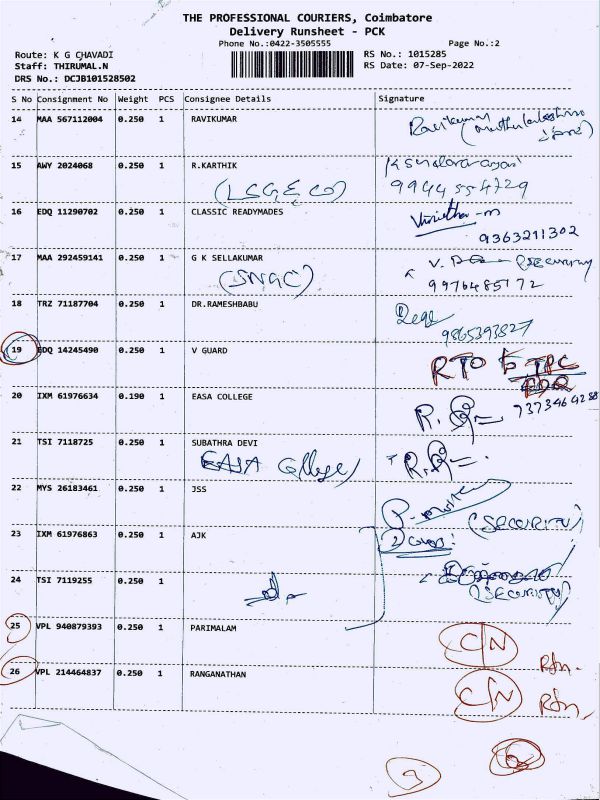 THE PROFESSIONAL COURIERS, Coimbatore
Delivery Runsheet - PCK
Phone No.:0422-3505555
Page No.:2
Route: K G CHAVADI
Staff: THIRUMAL.N
DRS No.: DCJB101528502
RS No.: 1015285
RS Date: 07-Sep-2022
S No Consignment No Weight PCS Consignee Details Signature
14 MAA 567112004 0.250 1 RAVIKUMAR Ravikumar
15 AWY 2024068 0.250 1 R.KARTHIK
9944554729
16 EDQ 11290702 0.250 1 CLASSIC READYMADES
9363211302
17 MAA 292459141 0.250 1 G K SELLAKUMAR
(SNGC) 9976485172
18 TRZ 71187704 0.250 1 DR.RAMESHBABU
9865393827
19 EDQ 14245490 0.250 1 V GUARD RTO to TPC
PDQ
20 IXM 61976634 0.190 1 EASA COLLEGE 7373464288
21 TSI 7118725 0.250 1 SUBATHRA DEVI
EASA College
22 MYS 26183461 0.250 1 JSS
(SECURITY)
23 IXM 61976863 0.250 1 AJK
24 TSI 7119255 0.250 1 do
(SECURITY)
25 VPL 940879393 0.250 1 PARIMALAM C/N Rtn.
26 VPL 214464837 0.250 1 RANGANATHAN C/N Rtn,